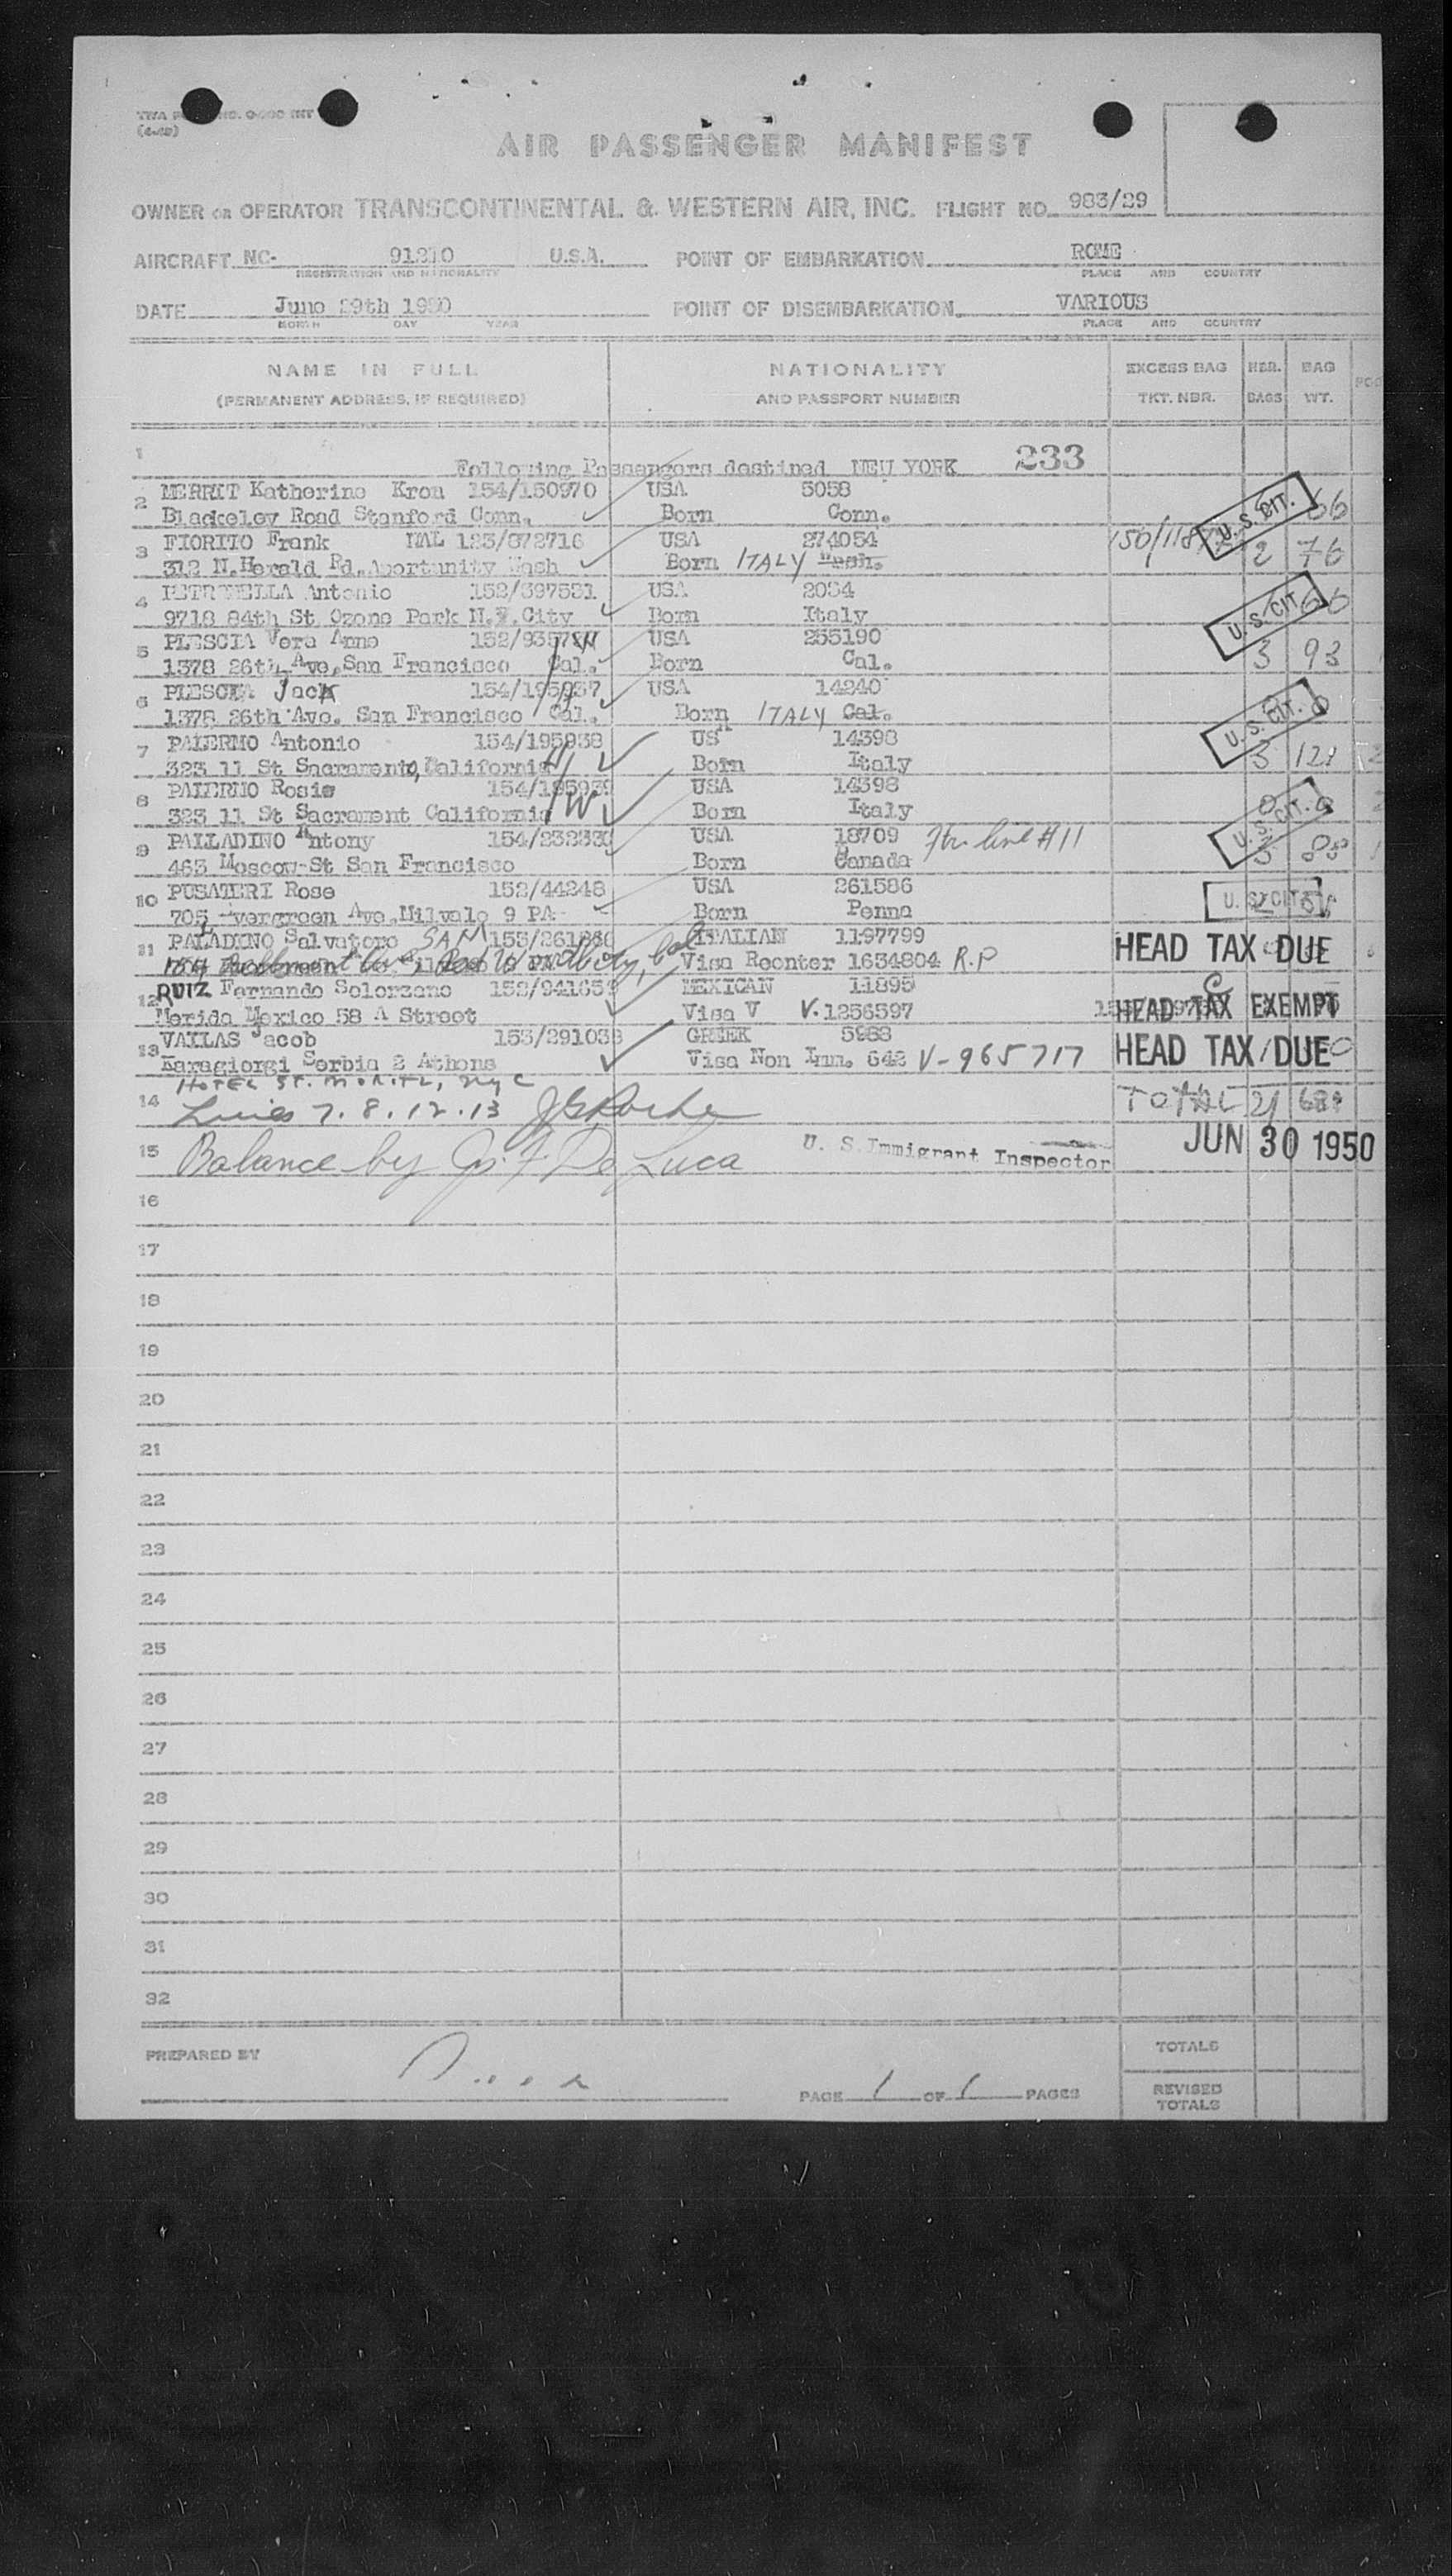 (4-49)
AIR PASSENGER MANIFEST
OWNER OR OPERATOR TRANSCONTINENTAL & WESTERN AIR, INC. FLIGHT NO. 983/29
AIRCRAFT NC- 91210 U.S.A. POINT OF EMBARKATION ROME
REGISTRATION AND NATIONALITY PLACE AND COUNTRY
DATE June 29th 1950 POINT OF DISEMBARKATION VARIOUS
MONTH DAY YEAR PLACE AND COUNTRY
NAME IN FULL NATIONALITY EXCESS BAG NBR. BAG
(PERMANENT ADDRESS, IF REQUIRED) AND PASSPORT NUMBER TKT. NBR. BAGS WT.
1 Following Passengers destined NEW YORK 233
2 MERRIT Katherine Kron 154/150970 USA 5058 U.S. CIT. 66
Blackeley Road Stanford Conn. Born Conn.
3 FIORITO Frank 123/872716 USA 274054 2 76
312 N.Herald Rd.Aportunity Wash Born ITALY Wash.
4 Antonio 152/397531 USA 2034 U.S. CIT. 66
9718 84th St Ozone Park N.Y.City Born Italy
5 PLESCIA Vera Anna USA 255190 3 93
1378 26th Ave,San Francisco Cal. Born Cal.
6 PLESCIA Jack 154/195937 USA 14240 U.S. CIT.
1378 26th Ave. San Francisco Cal. Born ITALY Cal.
7 PALERMO Antonio 154/195938 US 14398 3 121
323 11 St Sacramento, California Born Italy
8 PALERMO Rosie 154/195939 USA 14398 U.S. CIT.
323 11 St Sacrament California W Born Italy
9 PALLADINO Antony USA 18709 line #11 3
463 Moscow St San Francisco Born Canada
10 PUSATERI Rose 152/44248 USA 261586 U.S. CIT.
705 Evergreen Ave,Milvale 9 PA Born Penna
11 PALADINO Salvatore SAM ITALIAN 1197799 HEAD TAX DUE
Visa Reenter 1634804 R.P
12 RUIZ Fernando Solorzano MEXICAN 11895
Merida Mexico 58 A Street Visa V V.1256597 HEAD TAX EXEMPT
13 VAILAS Jacob 153/291038 GREEK 5988
Karagiorgi Serbia 2 Athens Visa Non Imm. 642 V-965717 HEAD TAX DUE
HOTEL ST. MORITZ, NYC
14 Lines 7. 8. 12. 13 TOTAL 21
15 Balance by Jos. F. De Luca U. S. Immigrant Inspector JUN 30 1950
16
17
18
19
20
21
22
23
24
25
26
27
28
29
30
31
32
PREPARED BY TOTALS
PAGE 1 OF 1 PAGES REVISED
TOTALS